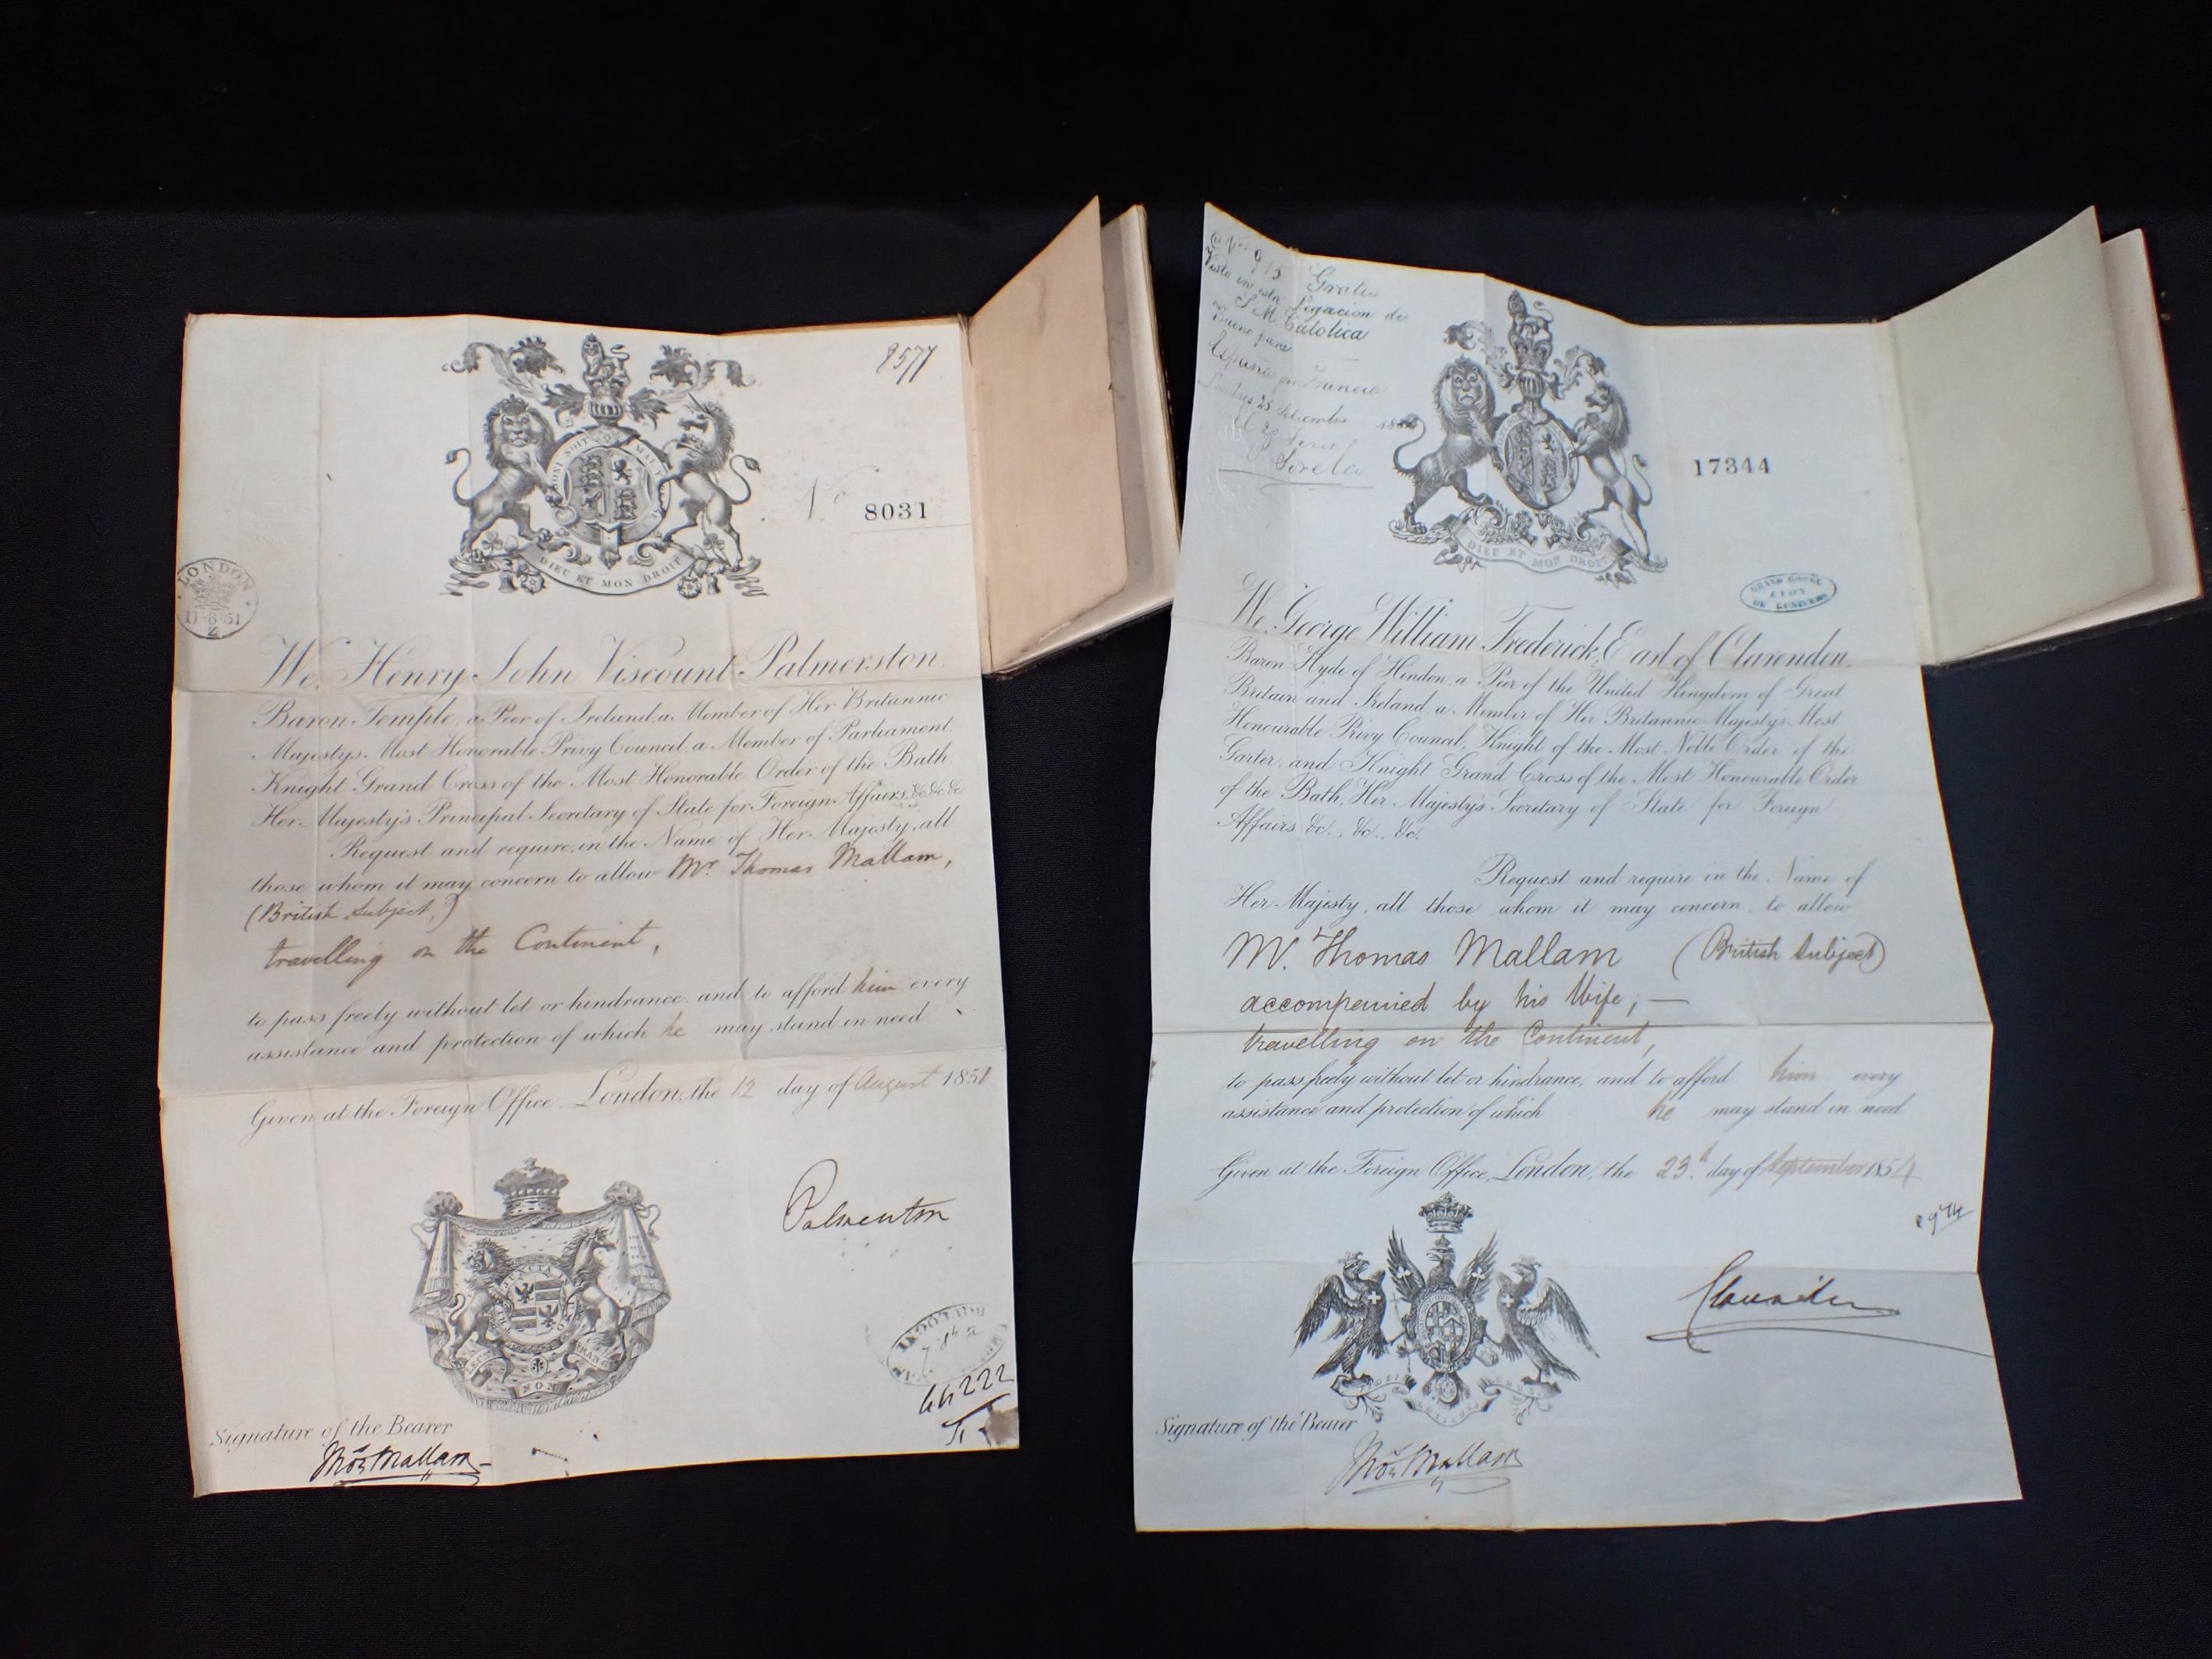 8577
HONI SOIT QUI MAL Y
DIEU ET MON DROIT
No 8031
LONDON
11·8·51
Z
We, Henry John Viscount Palmerston,
Baron Temple, a Peer of Ireland, a Member of Her Britannic
Majesty's Most Honorable Privy Council, a Member of Parliament,
Knight Grand Cross of the Most Honorable Order of the Bath,
Her Majesty's Principal Secretary of State for Foreign Affairs, &c &c &c
Request and require, in the Name of Her Majesty, all
those whom it may concern to allow Mr. Thomas Mallam,
(British Subject,)
travelling on the Continent,
to pass freely without let or hindrance, and to afford him every
assistance and protection of which he may stand in need
Given at the Foreign Office, London, the 12 day of August 1851
Palmerston
FLECTI NON FRANGI
44222
Signature of the Bearer
Thos Mallam
Gratis
Visto en esta Legacion de
S. M. Catolica
Bueno para
España por Francia
Londres 25 Setiembre
17344
DIEU ET MON DROIT
GRAND HOTEL
LYON
DE L'UNIVERS
We, George William Frederick, Earl of Clarendon,
Baron Hyde of Hindon, a Peer of the United Kingdom of Great
Britain and Ireland, a Member of Her Britannic Majesty's Most
Honourable Privy Council, Knight of the Most Noble Order of the
Garter, and Knight Grand Cross of the Most Honourable Order
of the Bath, Her Majesty's Secretary of State for Foreign
Affairs &c., &c., &c.
Request and require in the Name of
Her Majesty, all those whom it may concern to allow
Mr. Thomas Mallam (British Subject)
accompanied by his Wife; —
travelling on the Continent,
to pass freely without let or hindrance, and to afford him every
assistance and protection of which he may stand in need
Given at the Foreign Office, London, the 23d. day of September 1854
Clarendon
Signature of the Bearer
Thos Mallam